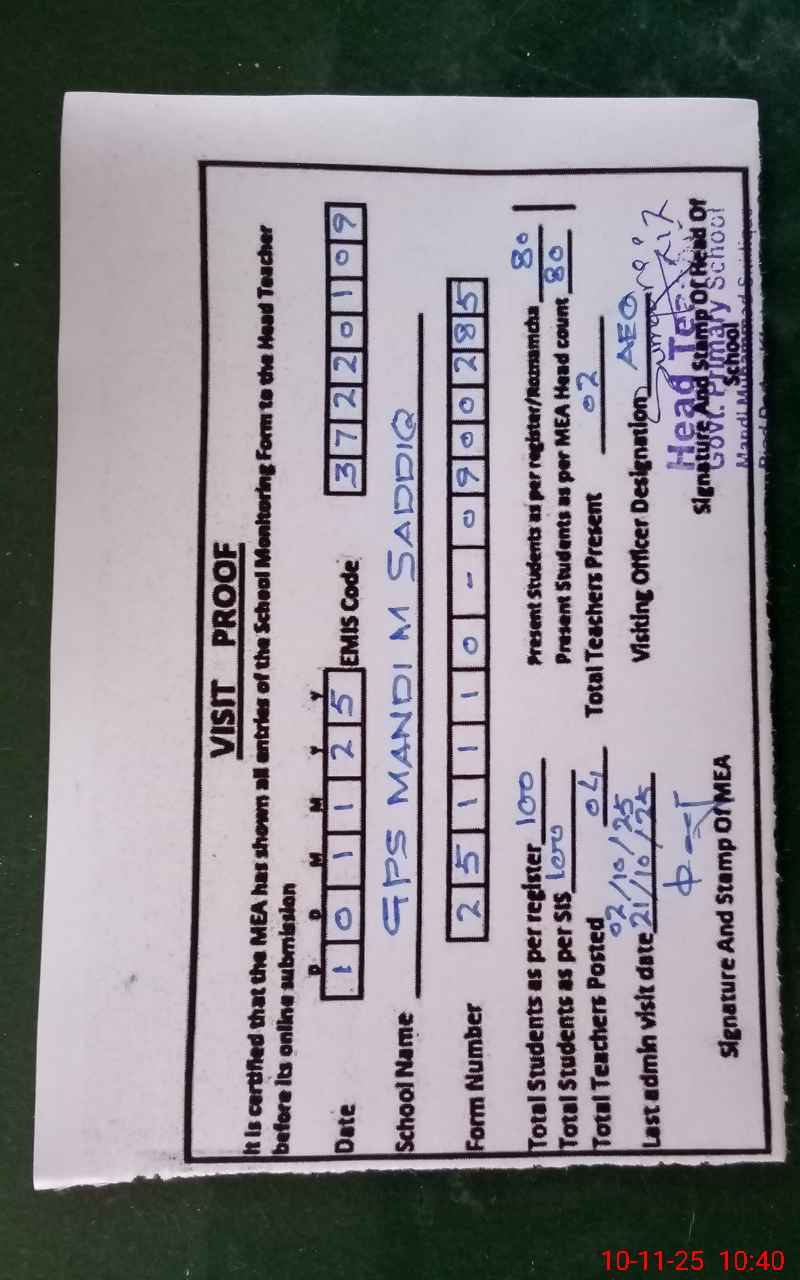 VISIT PROOF
It is certified that the MEA has shown all entries of the School Monitoring Form to the Head Teacher
before its online submission
D D M M Y Y
Date 1 0 1 1 2 5 EMIS Code 3 7 2 2 0 1 0 9
School Name GPS MANDI M SADDIQ
Form Number 2 5 1 1 1 0 - 0 9 0 0 2 8 5
Total Students as per register 100 Present Students as per register/Roznamcha 80
Total Students as per SIS 100 Present Students as per MEA Head count 80
Total Teachers Posted 04 Total Teachers Present 02
02/10/25
Last admin visit date 21/10/25 Visiting Officer Designation AEO
Head Tea
Signature And Stamp Of MEA Signature And Stamp Of Head Of
School
Govt. Primary School
Mandi Muhammad
10-11-25 10:40